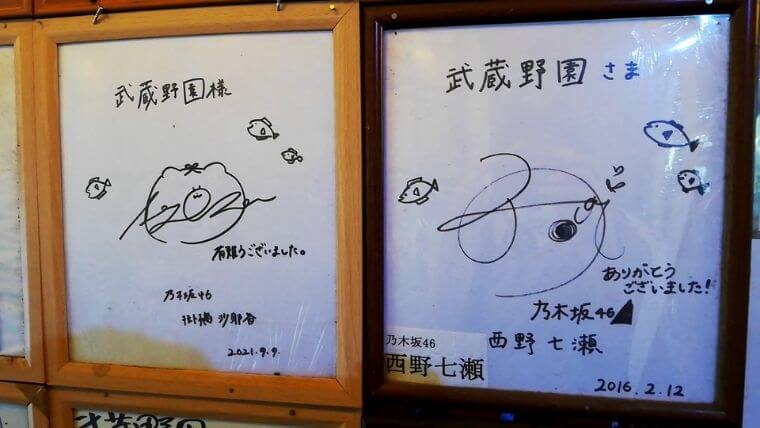 武蔵野園様
有難うございました。
乃木坂46
掛橋 沙耶香
2021.9.9.
武蔵野園 さま
ありがとう
ございました!
乃木坂46
西野七瀬
乃木坂46
西野七瀬
2016.2.12
武蔵野園